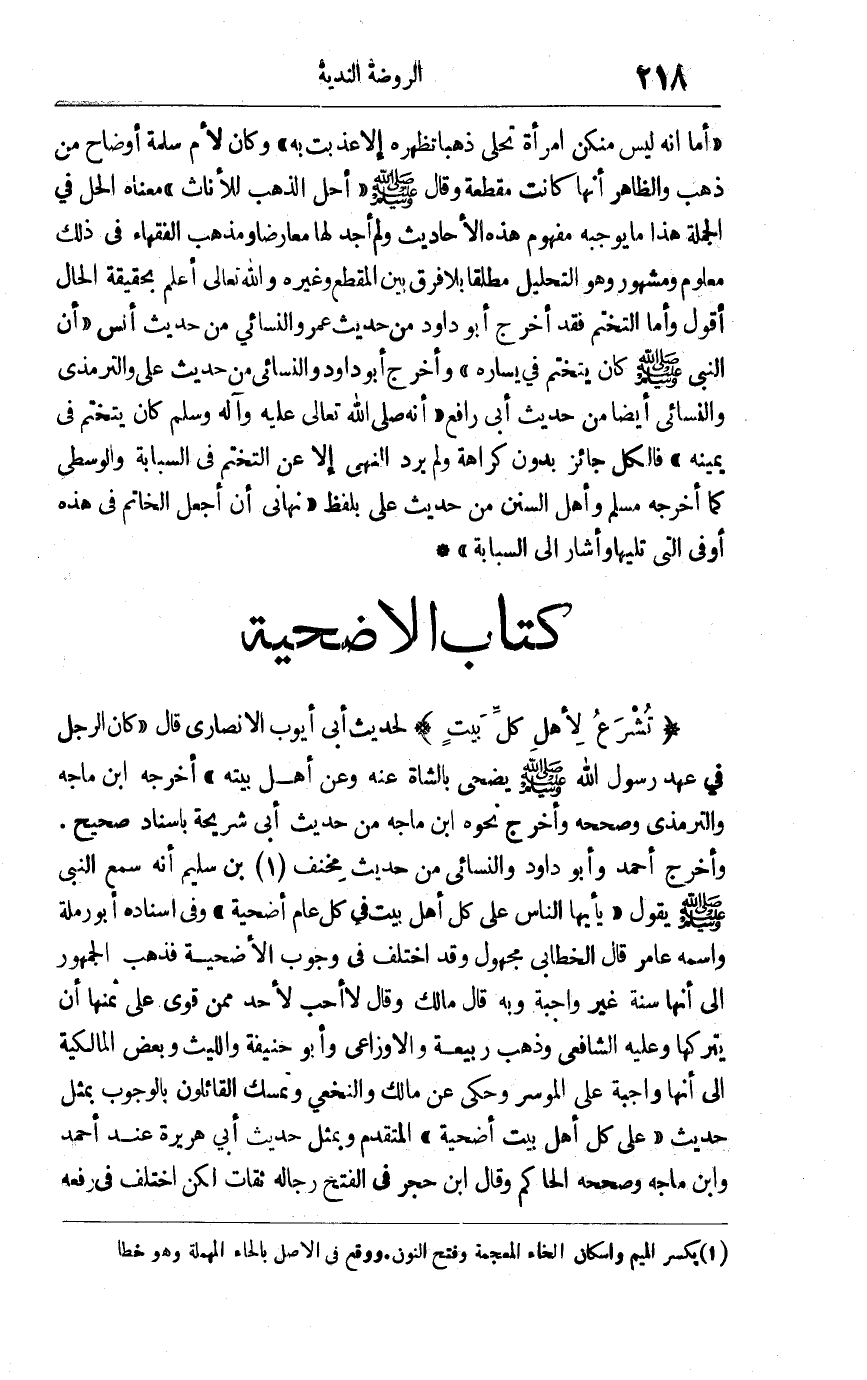 ٢١٨ الروضة الندية
«أما انه ليس منكن امرأة تحلى ذهبا تظهره إلا عذبت به» وكان لأم سلمة أوضاح من
ذهب والظاهر أنها كانت مقطعة وقال ﷺ « أحل الذهب للأناث » معناه الحل في
الجملة هذا ما يوجبه مفهوم هذه الأحاديث ولم أجد لها معارضا ومذهب الفقهاء فى ذلك
معلوم ومشهور وهو التحليل مطلقا بلا فرق بين المقطع وغيره والله تعالى أعلم بحقيقة الحال
أقول وأما التختم فقد أخرج أبو داود من حديث عمر والنسائي من حديث أنس «أن
النبى ﷺ كان يتختم في يساره » وأخرج أبو داود والنسائى من حديث على والترمذى
والنسائى أيضا من حديث أبى رافع « أنه صلى الله تعالى عليه وآله وسلم كان يتختم فى
يمينه » فالكل جائز بدون كراهة ولم يرد النهى إلا عن التختم فى السبابة والوسطى
كما أخرجه مسلم وأهل السنن من حديث على بلفظ «نهانى أن أجعل الخاتم فى هذه
أوفى التى تليها وأشار الى السبابة » *
كتاب الاضحية
﴿ تُشْرَعُ لِأَهلِ كلِّ بَيتٍ ﴾ لحديث أبى أيوب الانصارى قال «كان الرجل
في عهد رسول الله ﷺ يضحى بالشاة عنه وعن أهل بيته » أخرجه ابن ماجه
والترمذى وصححه وأخرج نحوه ابن ماجه من حديث أبى شريحة باسناد صحيح .
وأخرج أحمد وأبو داود والنسائى من حديث مِخنف (١) بن سليم أنه سمع النبي
ﷺ يقول « يأيها الناس على كل أهل بيت في كل عام أضحية » وفى اسناده أبو رملة
واسمه عامر قال الخطابى مجهول وقد اختلف فى وجوب الأضحية فذهب الجمهور
الى أنها سنة غير واجبة وبه قال مالك وقال لا أحب لأحد ممن قوى على ثمنها أن
يتركها وعليه الشافعى وذهب ربيعة والاوزاعى وأبو حنيفة والليث وبعض المالكية
الى أنها واجبة على الموسر وحكى عن مالك والنخعي وتمسك القائلون بالوجوب بمثل
حديث « على كل أهل بيت أضحية » المتقدم وبمثل حديث أبي هريرة عند أحمد
وابن ماجه وصححه الحاكم وقال ابن حجر فى الفتح رجاله ثقات لكن اختلف فى رفعه
(١) بكسر الميم واسكان الخاء المعجمة وفتح النون. ووقع فى الاصل بالحاء المهملة وهو خطا